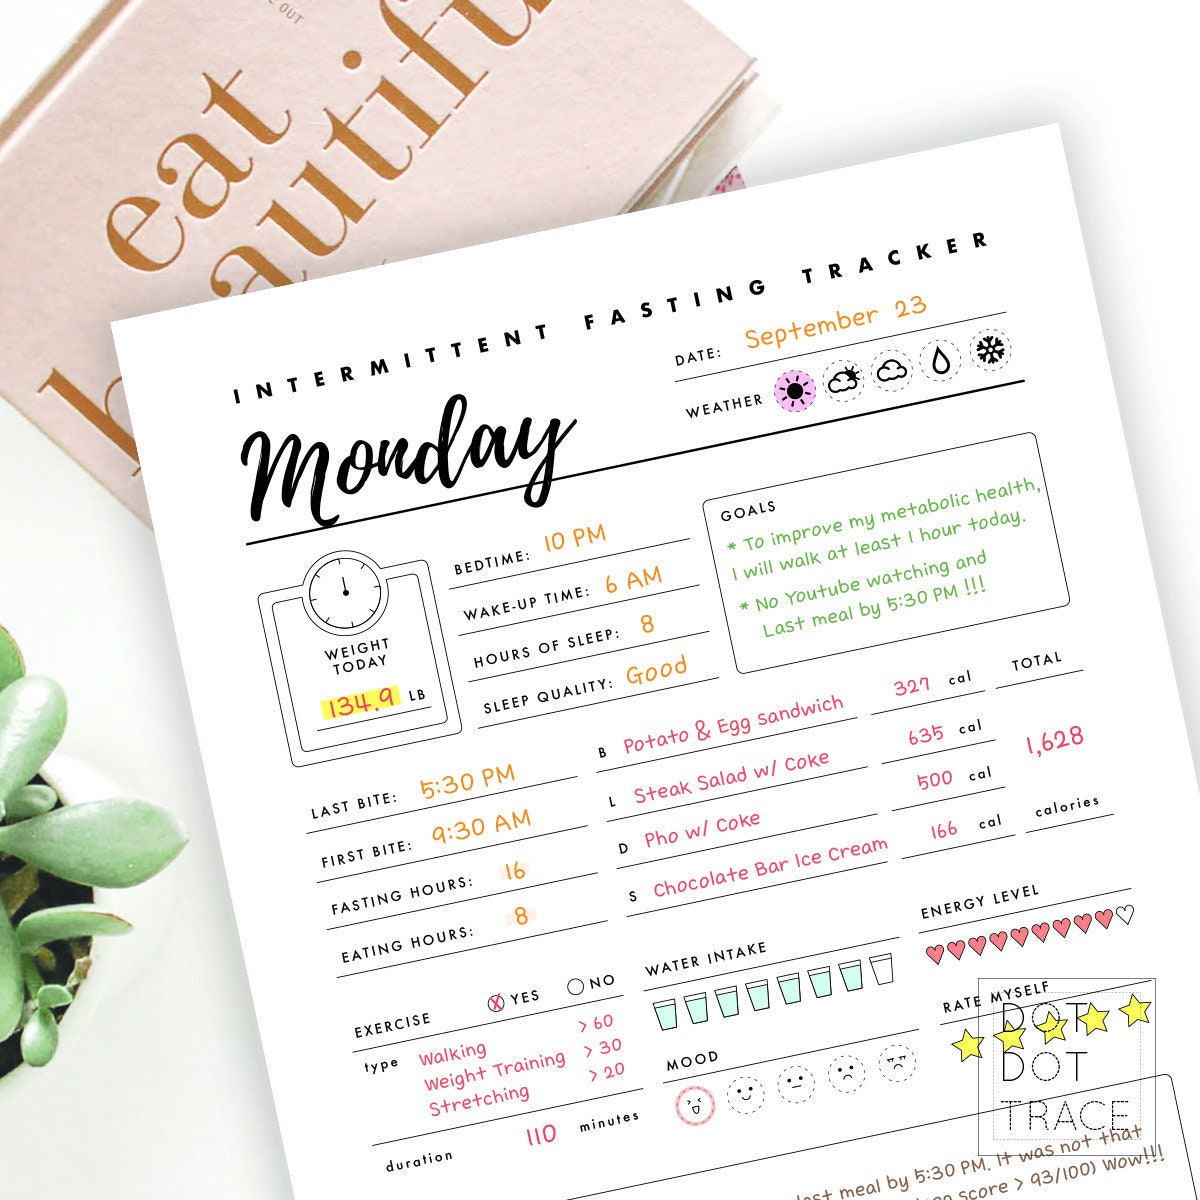 E OUT
eat
autifu
b
INTERMITTENT FASTING TRACKER
DATE: September 23
WEATHER
Monday
WEIGHT
TODAY
134.9 LB
BEDTIME: 10 PM
WAKE-UP TIME: 6 AM
HOURS OF SLEEP: 8
SLEEP QUALITY: Good
GOALS
* To improve my metabolic health,
I will walk at least 1 hour today.
* No Youtube watching and
Last meal by 5:30 PM !!!
LAST BITE: 5:30 PM
FIRST BITE: 9:30 AM
FASTING HOURS: 16
EATING HOURS: 8
B Potato & Egg sandwich 327 cal
L Steak Salad w/ Coke 635 cal
D Pho w/ Coke 500 cal
S Chocolate Bar Ice Cream 166 cal
TOTAL
1,628
calories
EXERCISE YES NO
type Walking > 60
Weight Training > 30
Stretching > 20
duration 110 minutes
WATER INTAKE
ENERGY LEVEL
MOOD
RATE MYSELF
DOT
DOT
TRACE
last meal by 5:30 PM. It was not that
score > 93/100) Wow!!!